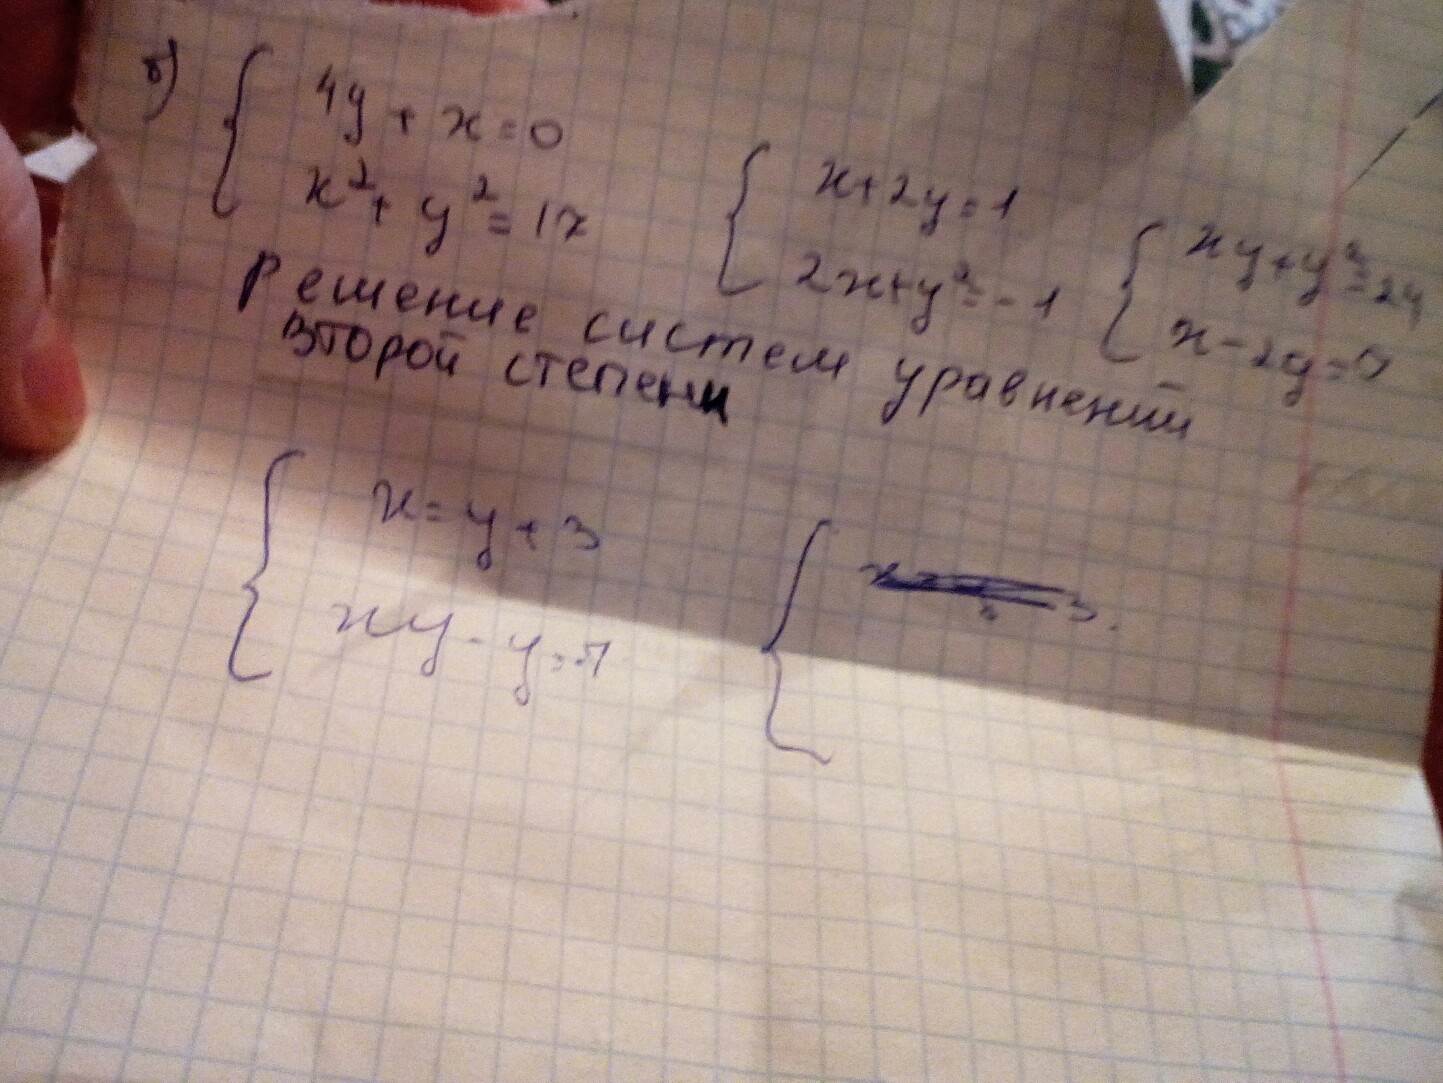 б) 4y + x = 0
x² + y² = 17
x + 2y = 1
2x + y² = -1
xy + y² = 24
x - 2y = 0
Решение систем уравнений
второй степени
x = y + 3
xy - y =